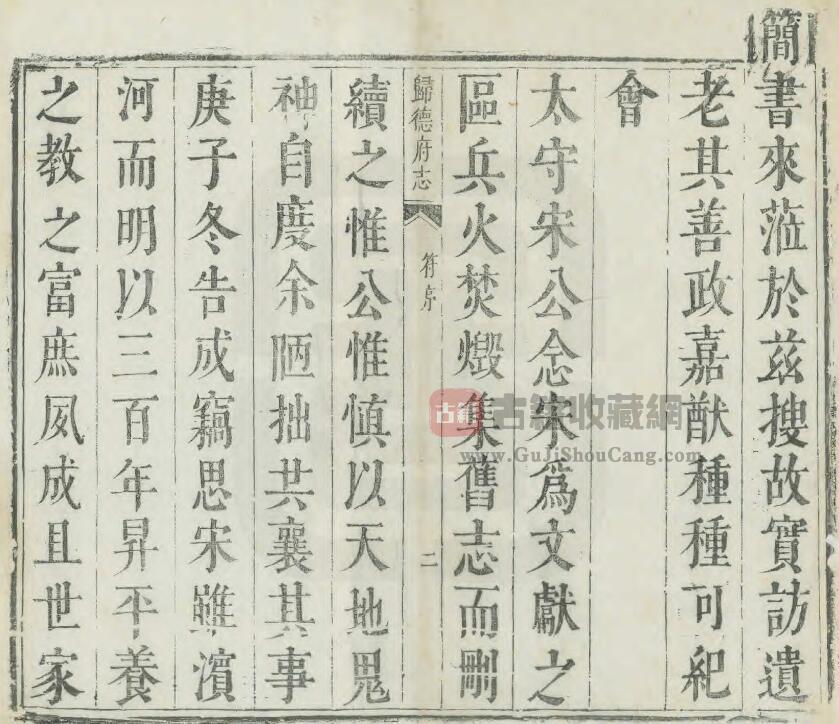 簡書來蒞於茲搜故實訪遺
老其善政嘉猷種種可紀
會
太守宋公念宋為文獻之
區兵火焚燬集舊志而刪
歸德府志 符序 二
續之惟公惟慎以天地鬼
神自度余陋拙共襄其事
庚子冬告成竊思宋雖濱
河而明以三百年昇平養
之教之富庶夙成且世家
古籍 古籍收藏網
www.GuJiShouCang.com